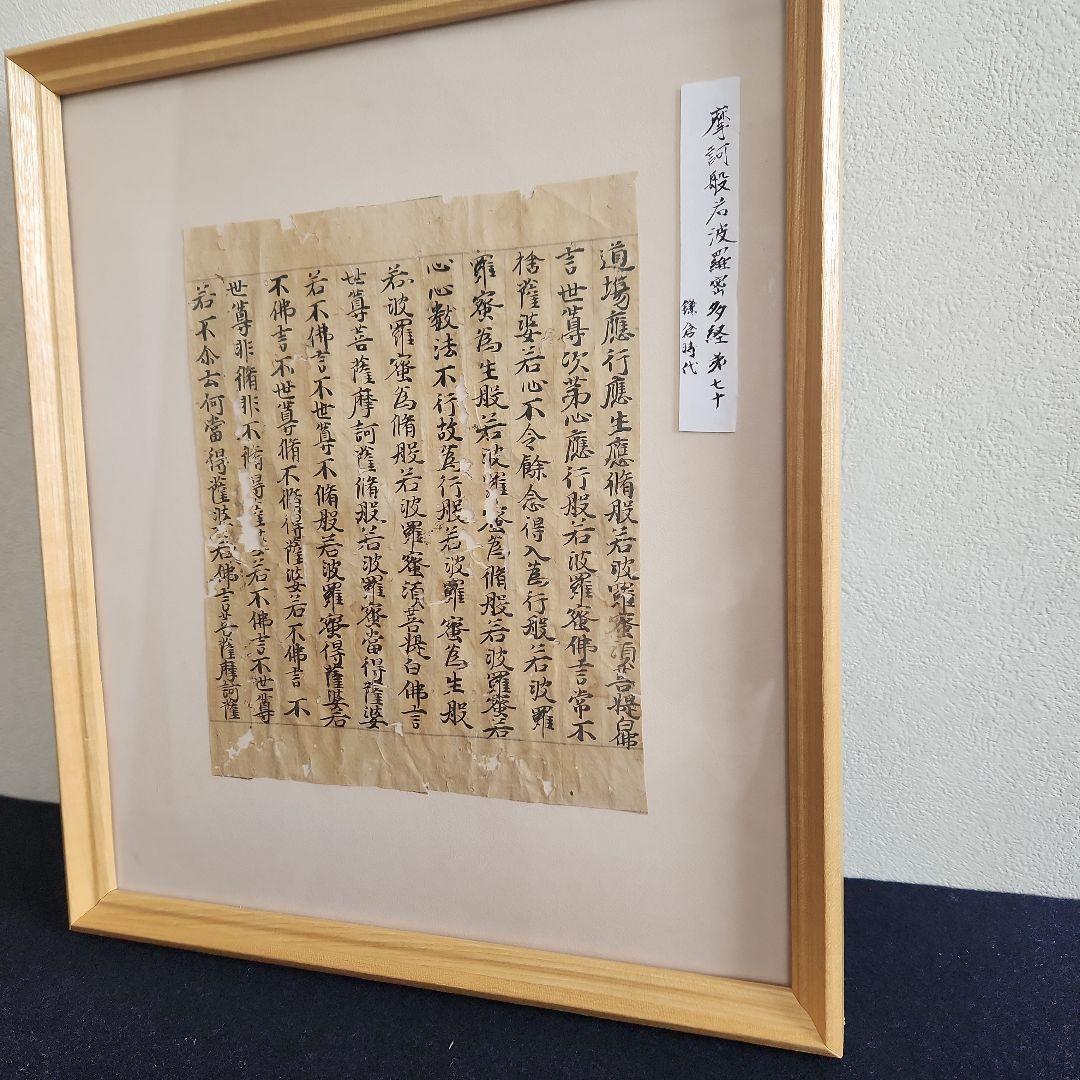 摩訶般若波羅密多経第七十
鎌倉時代
道場應行應生應脩般若波羅蜜須菩提白佛
言世尊次第心應行般若波羅蜜佛言常不
捨薩婆若心不令餘念得入為行般若波羅
蜜為生般若波羅蜜為脩般若波羅蜜若
心心數法不行故為行般若波羅蜜為生般
若波羅蜜為脩般若波羅蜜須菩提白佛言
世尊菩薩摩訶薩脩般若波羅蜜當得薩婆
若不佛言不世尊不脩般若波羅蜜得薩婆若
不佛言不世尊脩不脩得薩婆若不佛言不
世尊非脩非不脩得薩婆若不佛言不世尊
若不尒云何當得薩婆若佛言菩薩摩訶薩